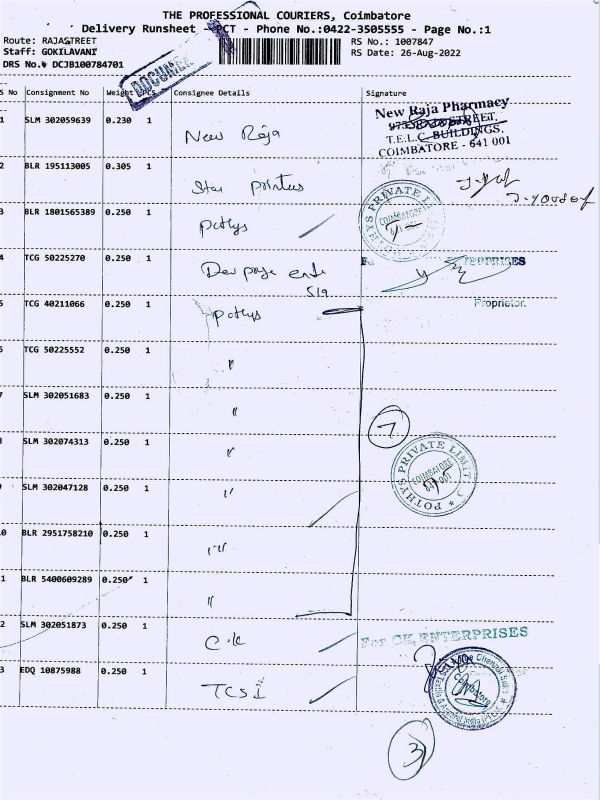 THE PROFESSIONAL COURIERS, Coimbatore
Delivery Runsheet - PCT - Phone No.:0422-3505555 - Page No.:1
Route: RAJASTREET
RS No.: 1007847
Staff: GOKILAVANI
RS Date: 26-Aug-2022
DRS No. DCJB100784701
S No Consignment No Weight PCS Consignee Details Signature
1 SLM 302059639 0.230 1 New Raja
New Raja Pharmacy
T.E.L.C. BUILDINGS,
COIMBATORE - 641 001
2 BLR 195113005 0.305 1 Star printers
J. yousof
3 BLR 1801565389 0.250 1 pothys
POTHYS PRIVATE LIMITED
COIMBATORE
641 001
4 TCG 50225270 0.250 1
519
For ENTERPRISES
Proprietor.
5 TCG 40211066 0.250 1 pothys
6 TCG 50225552 0.250 1 "
7 SLM 302051683 0.250 1 "
7
8 SLM 302074313 0.250 1 "
POTHYS PRIVATE LIMIT
COIMBATORE
641 001
9 SLM 302047128 0.250 1 "
10 BLR 2951758210 0.250 1 "
11 BLR 5400609289 0.250 1 "
12 SLM 302051873 0.250 1 C.K
For CK ENTERPRISES
13 EDQ 10875988 0.250 1 TCSI
3